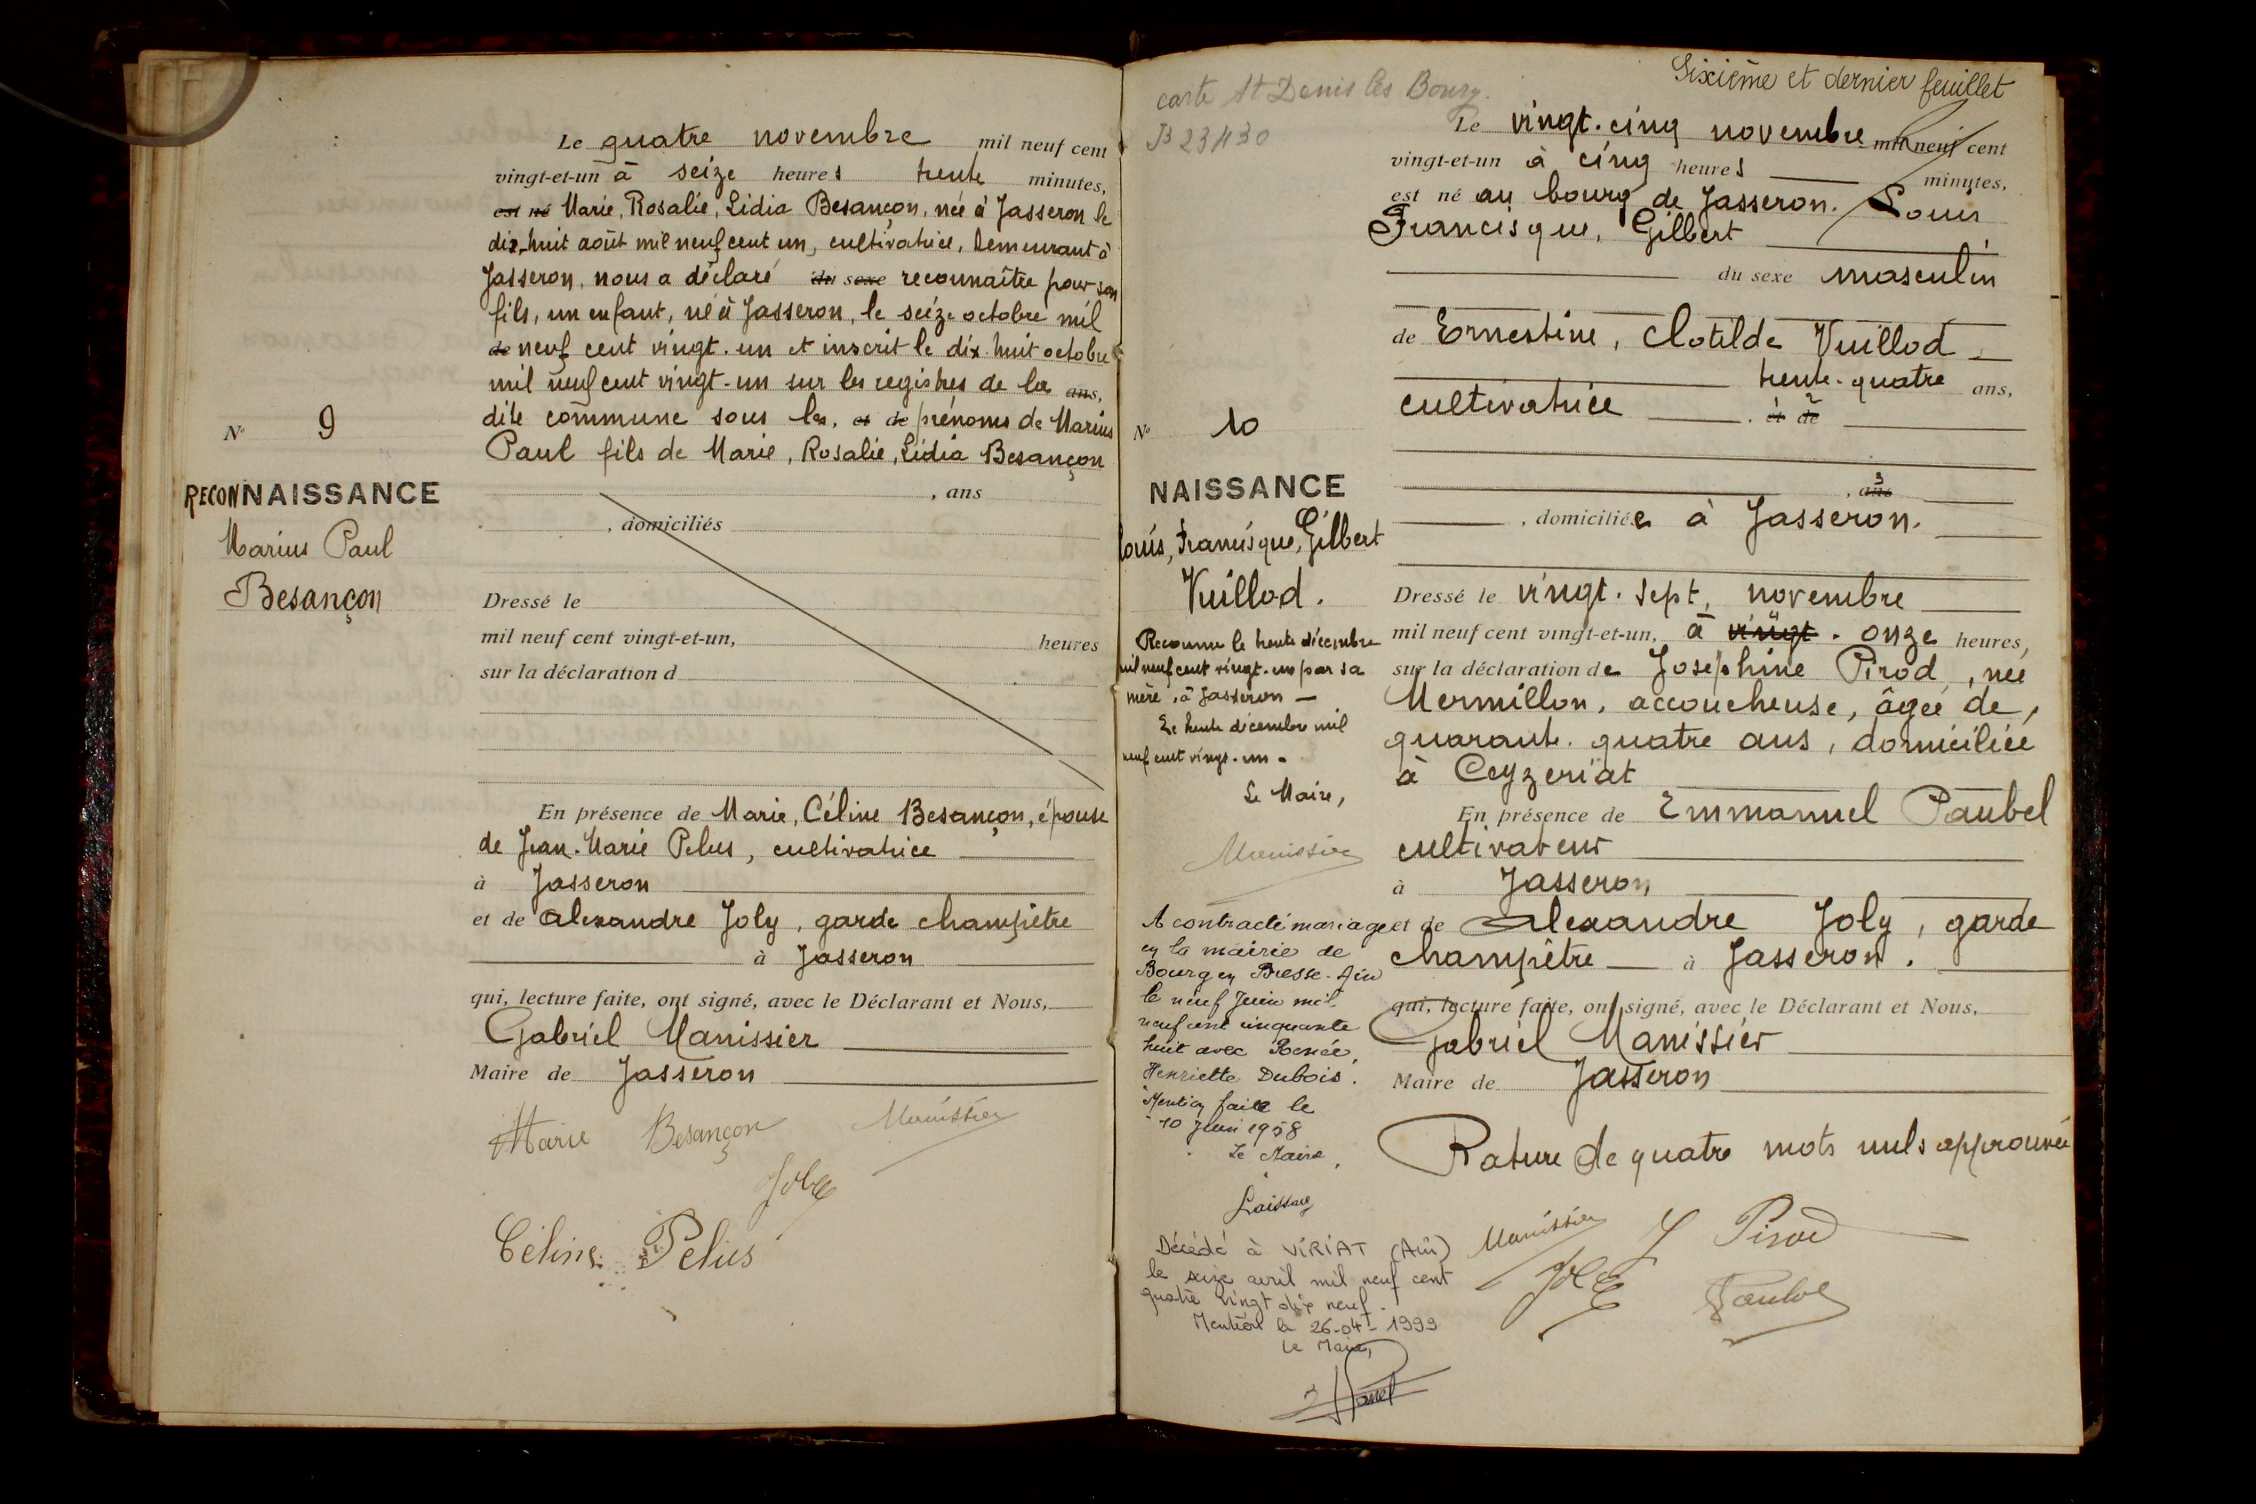 Le quatre novembre mil neuf cent
vingt-et-un à seize heures trente minutes,
est né Marie, Rosalie, Lidia Besançon, née à Jasseron le
dix-huit août mil neuf cent un, cultivatrice, demeurant à
Jasseron, nous a déclaré du sexe reconnaître pour son
fils, un enfant, né à Jasseron, le seize octobre mil
de neuf cent vingt-un et inscrit le dix-huit octobre
mil neuf cent vingt-un sur les registres de la ans,
dite commune sous les, et de prénoms de Marius
Paul fils de Marie, Rosalie, Lidia Besançon
N° 9
RECONNAISSANCE
Marius Paul
Besançon
, ans
, domiciliés
Dressé le
mil neuf cent vingt-et-un, heures
sur la déclaration d
En présence de Marie, Céline Besançon, épouse
de Jean-Marie Pelus, cultivatrice
à Jasseron
et de Alexandre Joly, garde champêtre
à Jasseron
qui, lecture faite, ont signé, avec le Déclarant et Nous,
Gabriel Manissier
Maire de Jasseron
Marie Besançon Manissier
Joly
Céline Pelus
Sixième et dernier feuillet
carte St Denis les Bourg.
B 23430
Le vingt-cinq novembre mil neuf cent
vingt-et-un à cinq heures minutes,
est né au bourg de Jasseron. Louis
Francisque, Gilbert
du sexe masculin
de Ernestine, Clotilde Vuillod
trente-quatre ans,
cultivatrice . et de
2
3
, ans
, domiciliée à Jasseron.
N° 10
NAISSANCE
Louis, Francisque, Gilbert
Vuillod.
Dressé le vingt-sept, novembre
mil neuf cent vingt-et-un, à vingt. onze heures,
sur la déclaration de Josephine Pirod, née
Mermillon, accoucheuse, âgée de,
quarante-quatre ans, domiciliée
à Ceyzeriat
En présence de Emmanuel Paubel
cultivateur
à Jasseron
et de Alexandre Joly, garde
champêtre à Jasseron.
qui, lecture faite, ont signé, avec le Déclarant et Nous,
Gabriel Manissier
Maire de Jasseron
Rature de quatre mots nuls approuvée
Manissier J Pirod
Joly Paubel
Reconnu le trente décembre
mil neuf cent vingt-un par sa
mère, à Jasseron —
Le trente décembre mil
neuf cent vingt-un.
Le Maire,
Manissier
A contracté mariage
en la mairie de
Bourg en Bresse-Ain
le neuf Juin mil
neuf cent cinquante
huit avec Renée,
Henriette Dubois.
Mention faite le
10 Juin 1958
Le Maire,
Décédé à VIRIAT (Ain)
le seize avril mil neuf cent
quatre vingt dix neuf.
Mention le 26-04-1999
Le Maire,